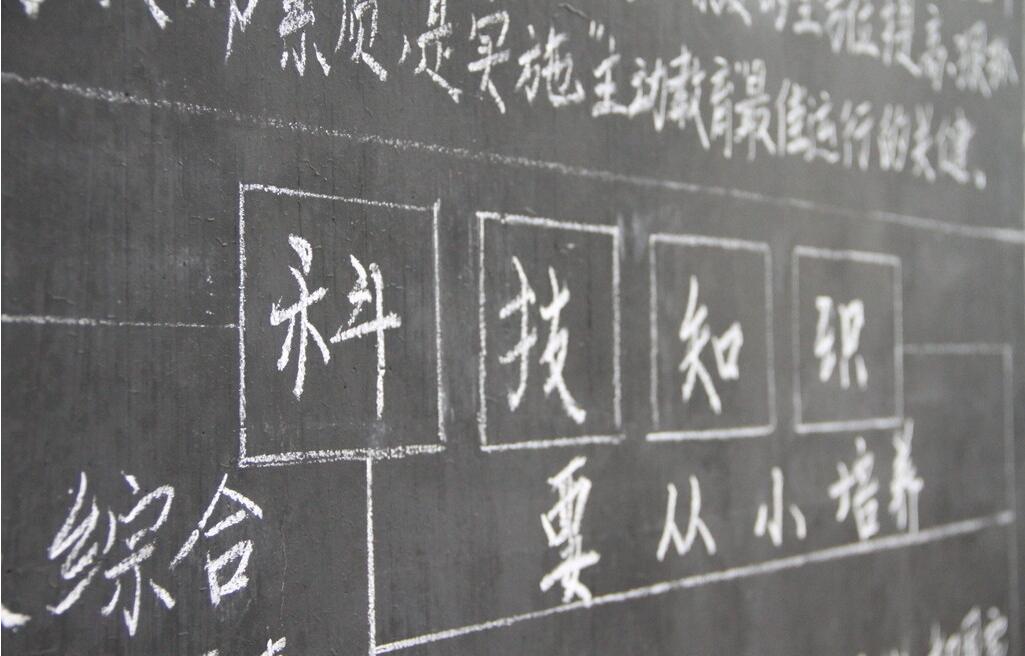 素质是实施"主动教育"最佳运行的关键、
科技知识
要从小培养
综合